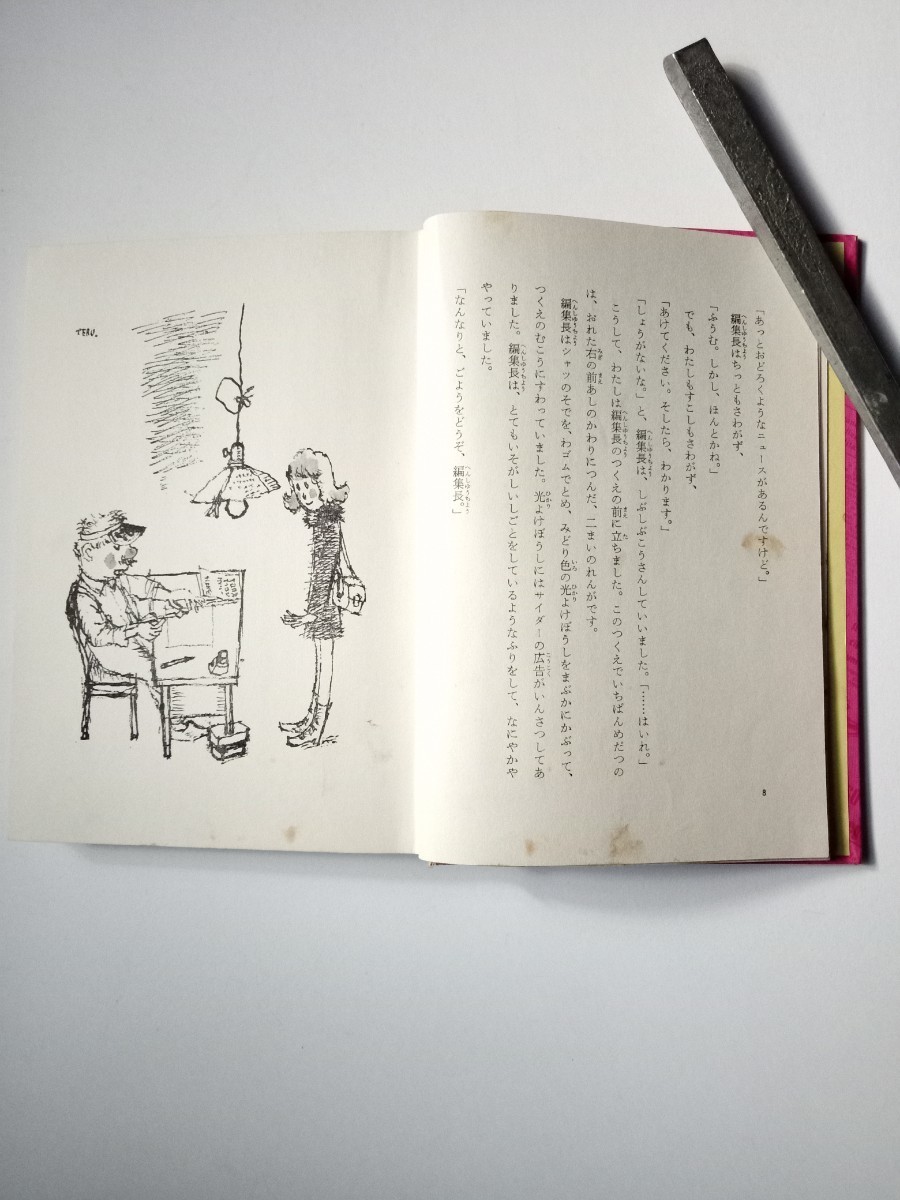 「あっとおどろくようなニュースがあるんですけど。」
編集長はちっともさわがず、
「ふうむ。しかし、ほんとかね。」
でも、わたしもすこしもさわがず、
「あけてください。そしたら、わかります。」
「しょうがないな。」と、編集長は、しぶしぶこうさんしていいました。「……はいれ。」
こうして、わたしは編集長のつくえの前に立ちました。このつくえでいちばんめだつの
は、おれた右の前あしのかわりにつんだ、二まいのれんがです。
編集長はシャツのそでを、わゴムでとめ、みどり色の光よけぼうしをまぶかにかぶって、
つくえのむこうにすわっていました。光よけぼうしにはサイダーの広告がいんさつしてあ
りました。編集長は、とてもいそがしいしごとをしているようなふりをして、なにやかや
やっていました。
「なんなりと、ごようをどうぞ、編集長。」
8
TERU.